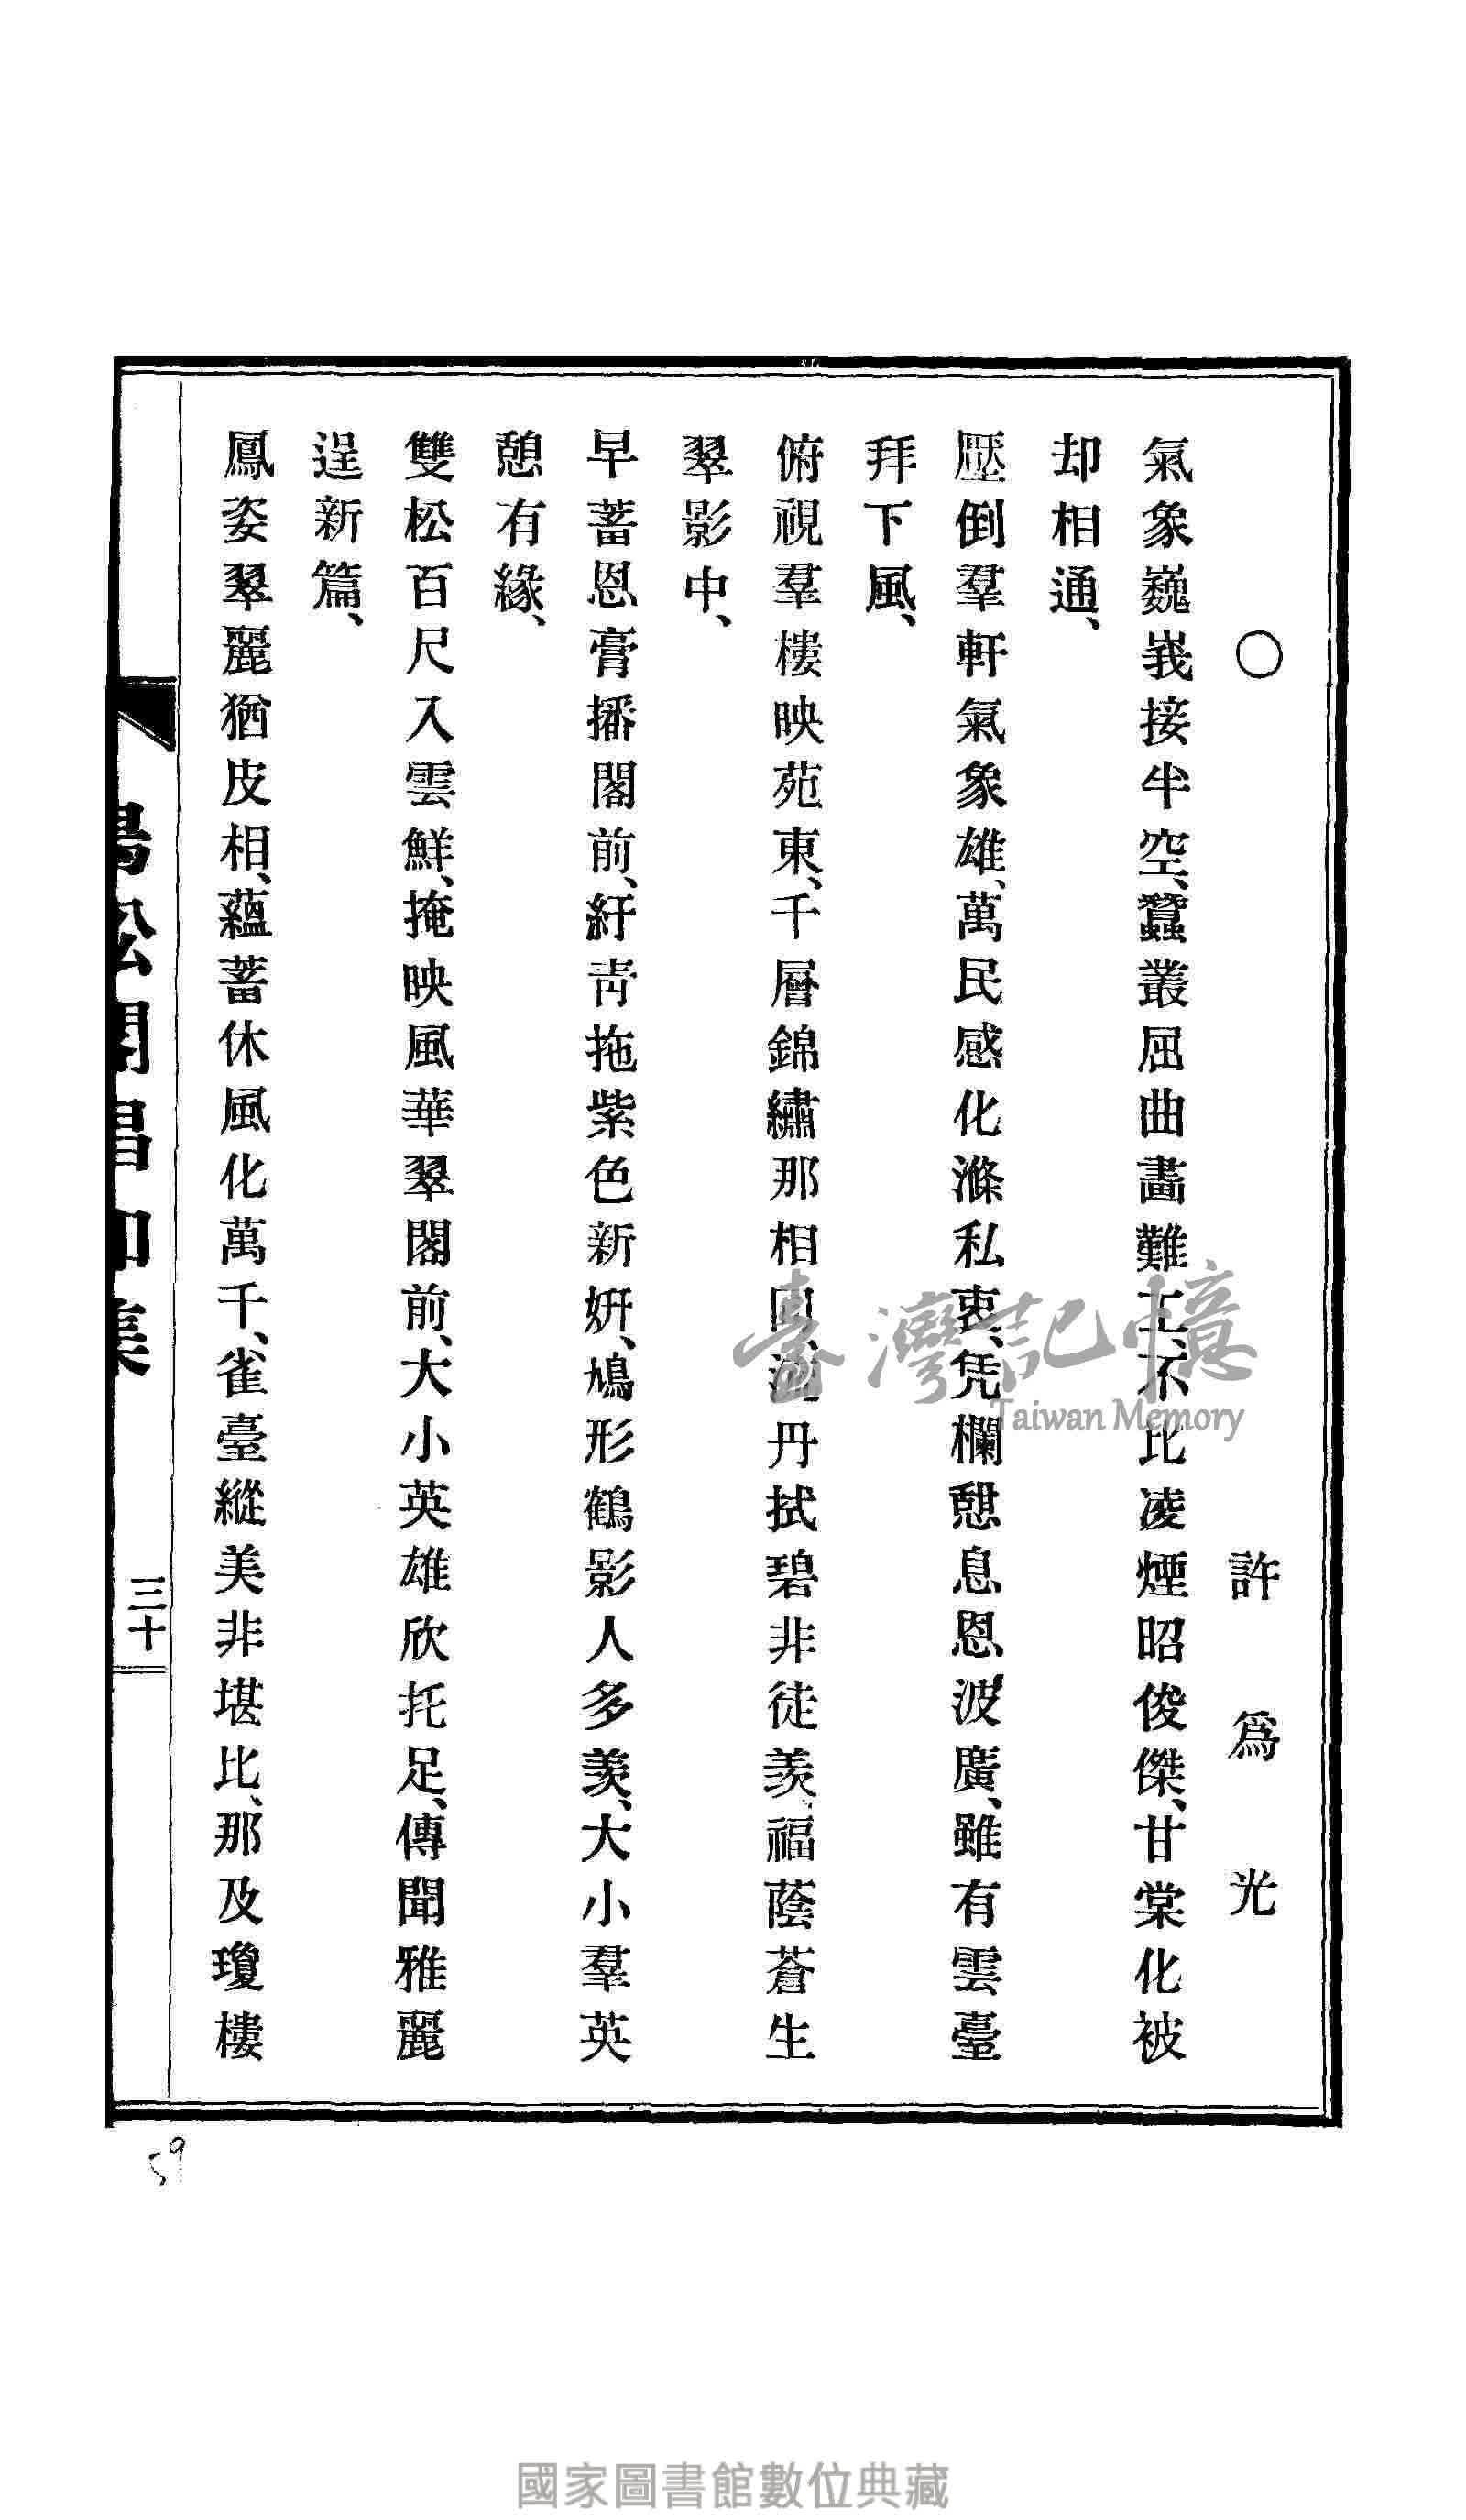 ○　許　爲　光
氣象巍峩接半空、蠶叢屈曲畵難工、不比凌煙昭俊傑、甘棠化被
却相通、
壓倒羣軒氣象雄、萬民感化滌私衷、凭欄憇息恩波廣、雖有雲臺
拜下風、
俯視羣樓映苑東、千層錦繡那相同、流丹拭碧非徒羡、福蔭蒼生
翠影中、
早蓄恩膏播閣前、紆青拖紫色新姸、鳩形鶴影人多羨、大小羣英
憩有緣、
雙松百尺入雲鮮、掩映風華翠閣前、大小英雄欣托足、傳聞雅麗
逞新篇、
鳳姿翠麗猶皮相、蘊蓄休風化萬千、雀臺縱美非堪比、那及瓊樓
揚松閣唱和集
三十
59
臺灣記憶
Taiwan Memory
國家圖書館數位典藏